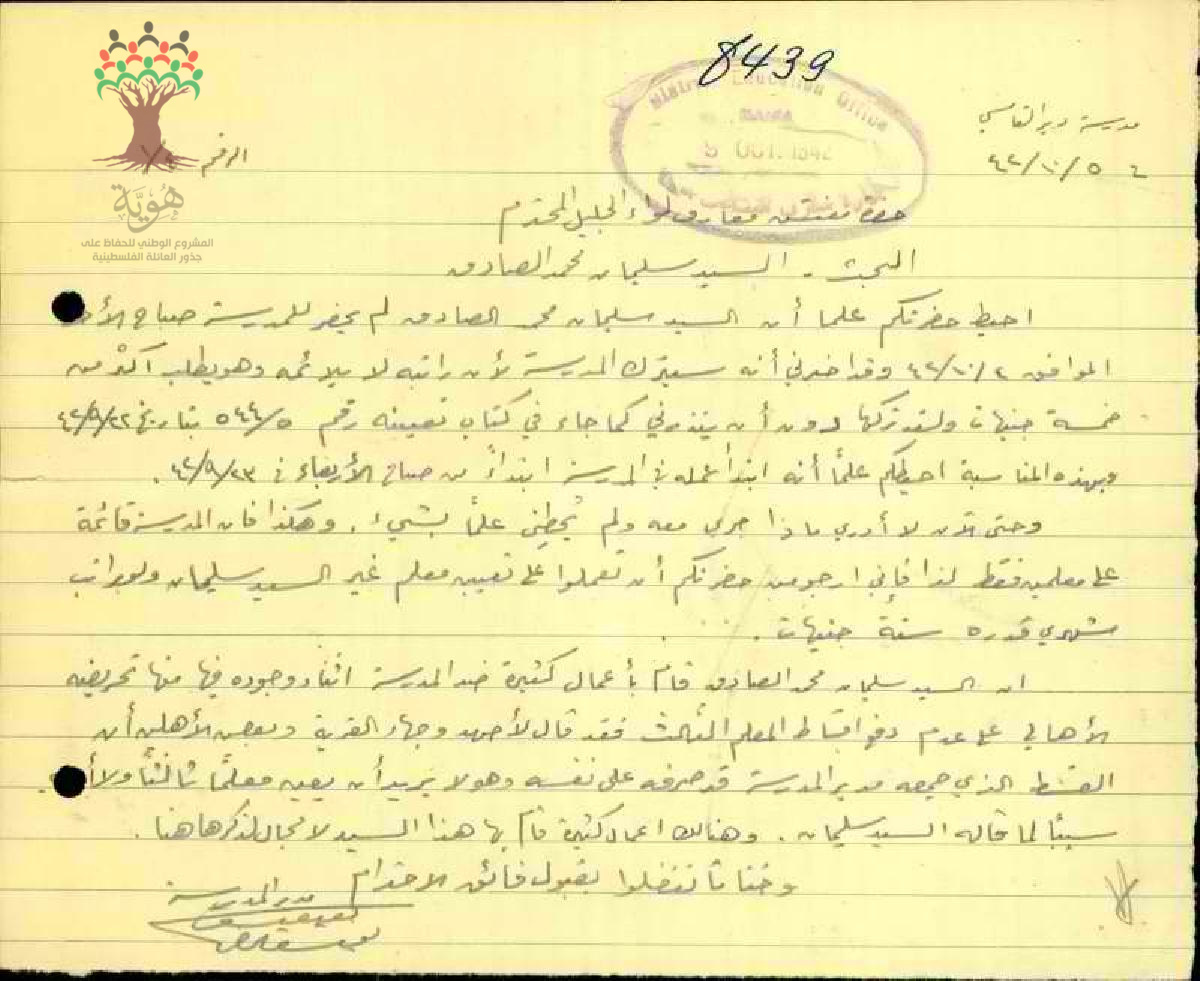 8439
District Education Office
HAIFA
5 OCT. 1942
مدرسة دير القاسي
٤٢/١٠/٥
الرقم
هُوِيَّة
المشروع الوطني للحفاظ على
جذور العائلة الفلسطينية
حضرة مفتش معارف لواء الجليل المحترم
البحث . السيد سليمان محمد الصادق
احيط حضرتكم علما أن السيد سليمان محمد الصادق لم يحضر للمدرسة صباح
الموافق ٤٢/١٠/٢ وقد اخبرني أنه سيترك المدرسة لأن راتبه لا يلائمه وهو يطلب أكثر من
خمسة جنيهات ولقد تركها دون أن ينذرني كما جاء في كتاب تعيينه رقم ٥٤٤/٥ بتاريخ ٤٢/٩/٢٢
وبهذه المناسبة احيطكم علمًا أنه ابتدأ عمله في المدرسة ابتداءً من صباح الأربعاء في ٤٢/٩/٢٣ .
وحتى الآن لا أدري ماذا جرى معه ولم يُحطني علمًا بشيء . وهكذا فان المدرسة قائمة
على معلمين فقط لذا فإني ارجو من حضرتكم أن تعملوا على تعيين معلم غير السيد سليمان ولو براتب
شهري قدره ستة جنيهات .
ان السيد سليمان محمد الصادق قام بأعمال كثيرة ضد المدرسة اثناء وجوده فيها منها تحريضه
الأهالي على عدم دفع اقساط المعلم الثالث فقد قال لأحد وجهاء القرية وبعض الأهلين أن
القسط الذي جمعه مدير المدرسة قد صرفه على نفسه وهو لا يريد أن يعين معلمًا ثالثًا
سببًا لما قاله السيد سليمان . وهنالك اعمال كثيرة قام بها هذا السيد لا مجال لذكرها هنا .
وختامًا تفضلوا بقبول فائق الاحترام
مدير المدرسة